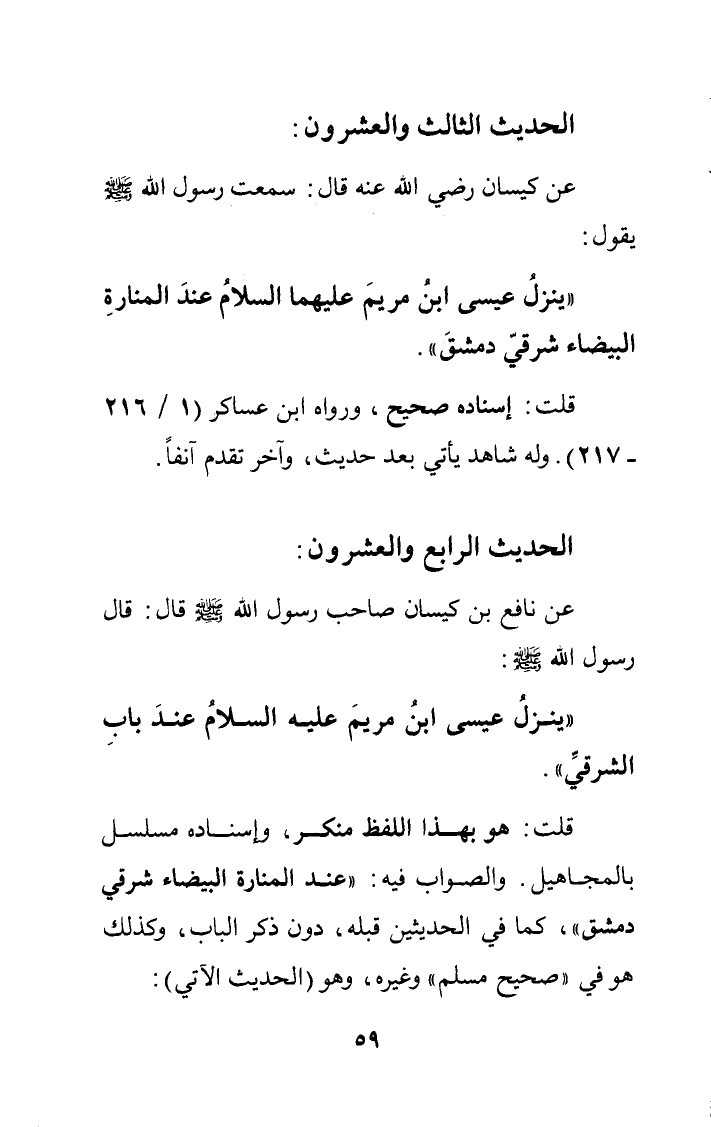 الحديث الثالث والعشرون:
عن كيسان رضي الله عنه قال: سمعت رسول الله ﷺ
يقول:
«ينزلُ عيسى ابنُ مريمَ عليهما السلامُ عندَ المنارةِ
البيضاء شرقيّ دمشقَ».
قلت: إسناده صحيح، ورواه ابن عساكر (١ / ٢١٦
ـ ٢١٧). وله شاهد يأتي بعد حديث، وآخر تقدم آنفاً.
الحديث الرابع والعشرون:
عن نافع بن كيسان صاحب رسول الله ﷺ قال: قال
رسول الله ﷺ:
«ينـزلُ عيسى ابنُ مريمَ عليـه السـلامُ عنـدَ بابِ
الشرقيِّ».
قلت: هو بهـذا اللفظ منكـر، وإسنـاده مسلسـل
بالمجـاهيل. والصـواب فيه: «عنـد المنارة البيضاء شرقي
دمشق»، كما في الحديثين قبله، دون ذكر الباب، وكذلك
هو في «صحيح مسلم» وغيره، وهو (الحديث الآتي):
٥٩